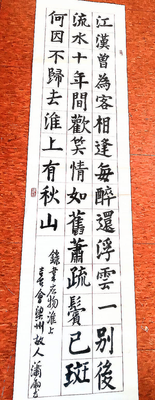 江漢曾為客相逢每醉還浮雲一別後
流水十年間歡笑情如舊蕭疏鬢已斑
何因不歸去淮上有秋山
錄韋应物淮上
喜會梁州故人